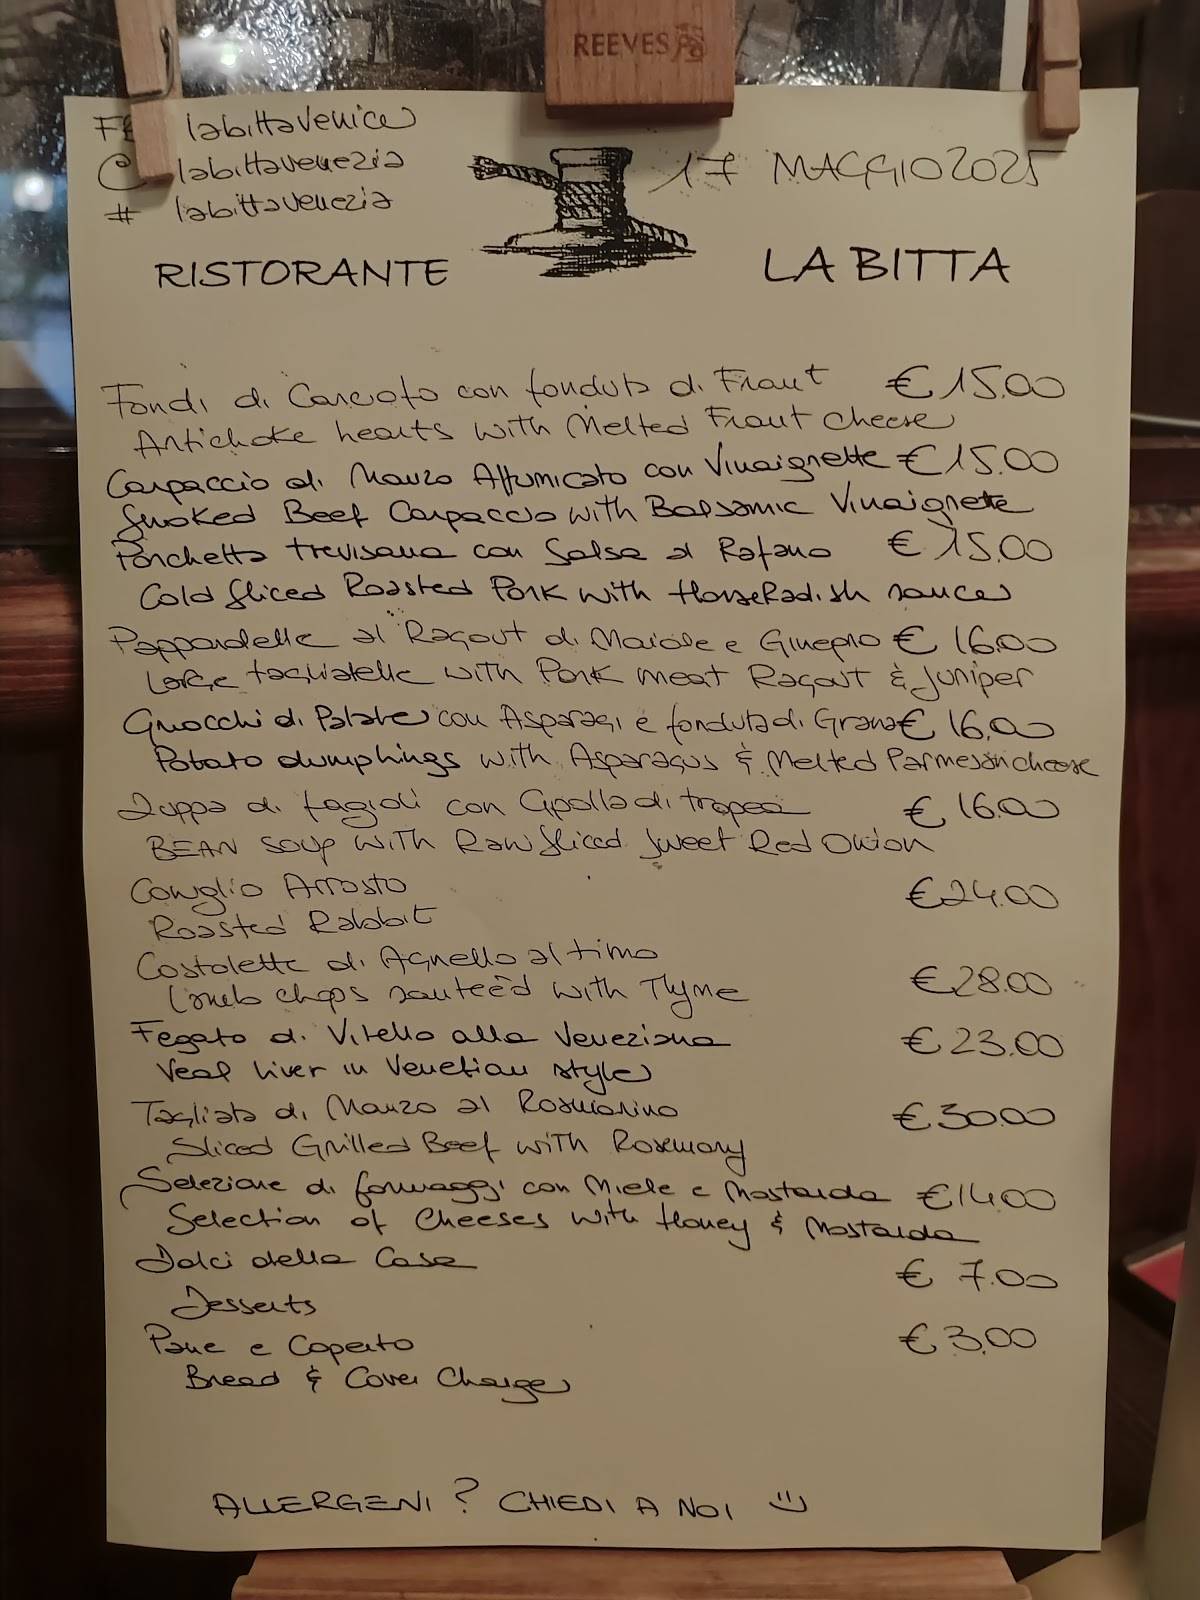 REEVES
FB labittavenice
@ labittavenezia
# labittavenezia
17 MAGGIO 2025
RISTORANTE LA BITTA
Fondi di Carciofo con fonduta di Fraut € 15.00
Artichoke hearts with Melted Fraut cheese
Carpaccio di Manzo Affumicato con Vinaigrette € 15.00
Smoked Beef Carpaccio with Balsamic Vinaigrette
Porchetta trevisana con Salsa al Rafano € 15.00
Cold Sliced Roasted Pork with HorseRadish sauce
Pappardelle al Ragout di Maiale e Ginepro € 16.00
Large tagliatelle with Pork meat Ragout & Juniper
Gnocchi di Patate con Asparagi e fonduta di Grana € 16.00
Potato dumphings with Asparagus & Melted Parmesan cheese
Zuppa di fagioli con Cipolla di tropea € 16.00
BEAN soup with Raw Sliced Sweet Red Onion
Coniglio Arrosto € 24.00
Roasted Rabbit
Costolette di Agnello al timo
Lamb chops sauteèd with Thyme € 28.00
Fegato di Vitello alla Veneziana € 23.00
Veal Liver in Venetian style
Tagliata di Manzo al Rosmarino € 30.00
Sliced Grilled Beef with Rosemary
Selezione di formaggi con Miele e Mostarda € 14.00
Selection of Cheeses with Honey & Mostarda
Dolci della Casa € 7.00
Desserts
Pane e Coperto € 3.00
Bread & Cover Charge
ALLERGENI? CHIEDI A NOI